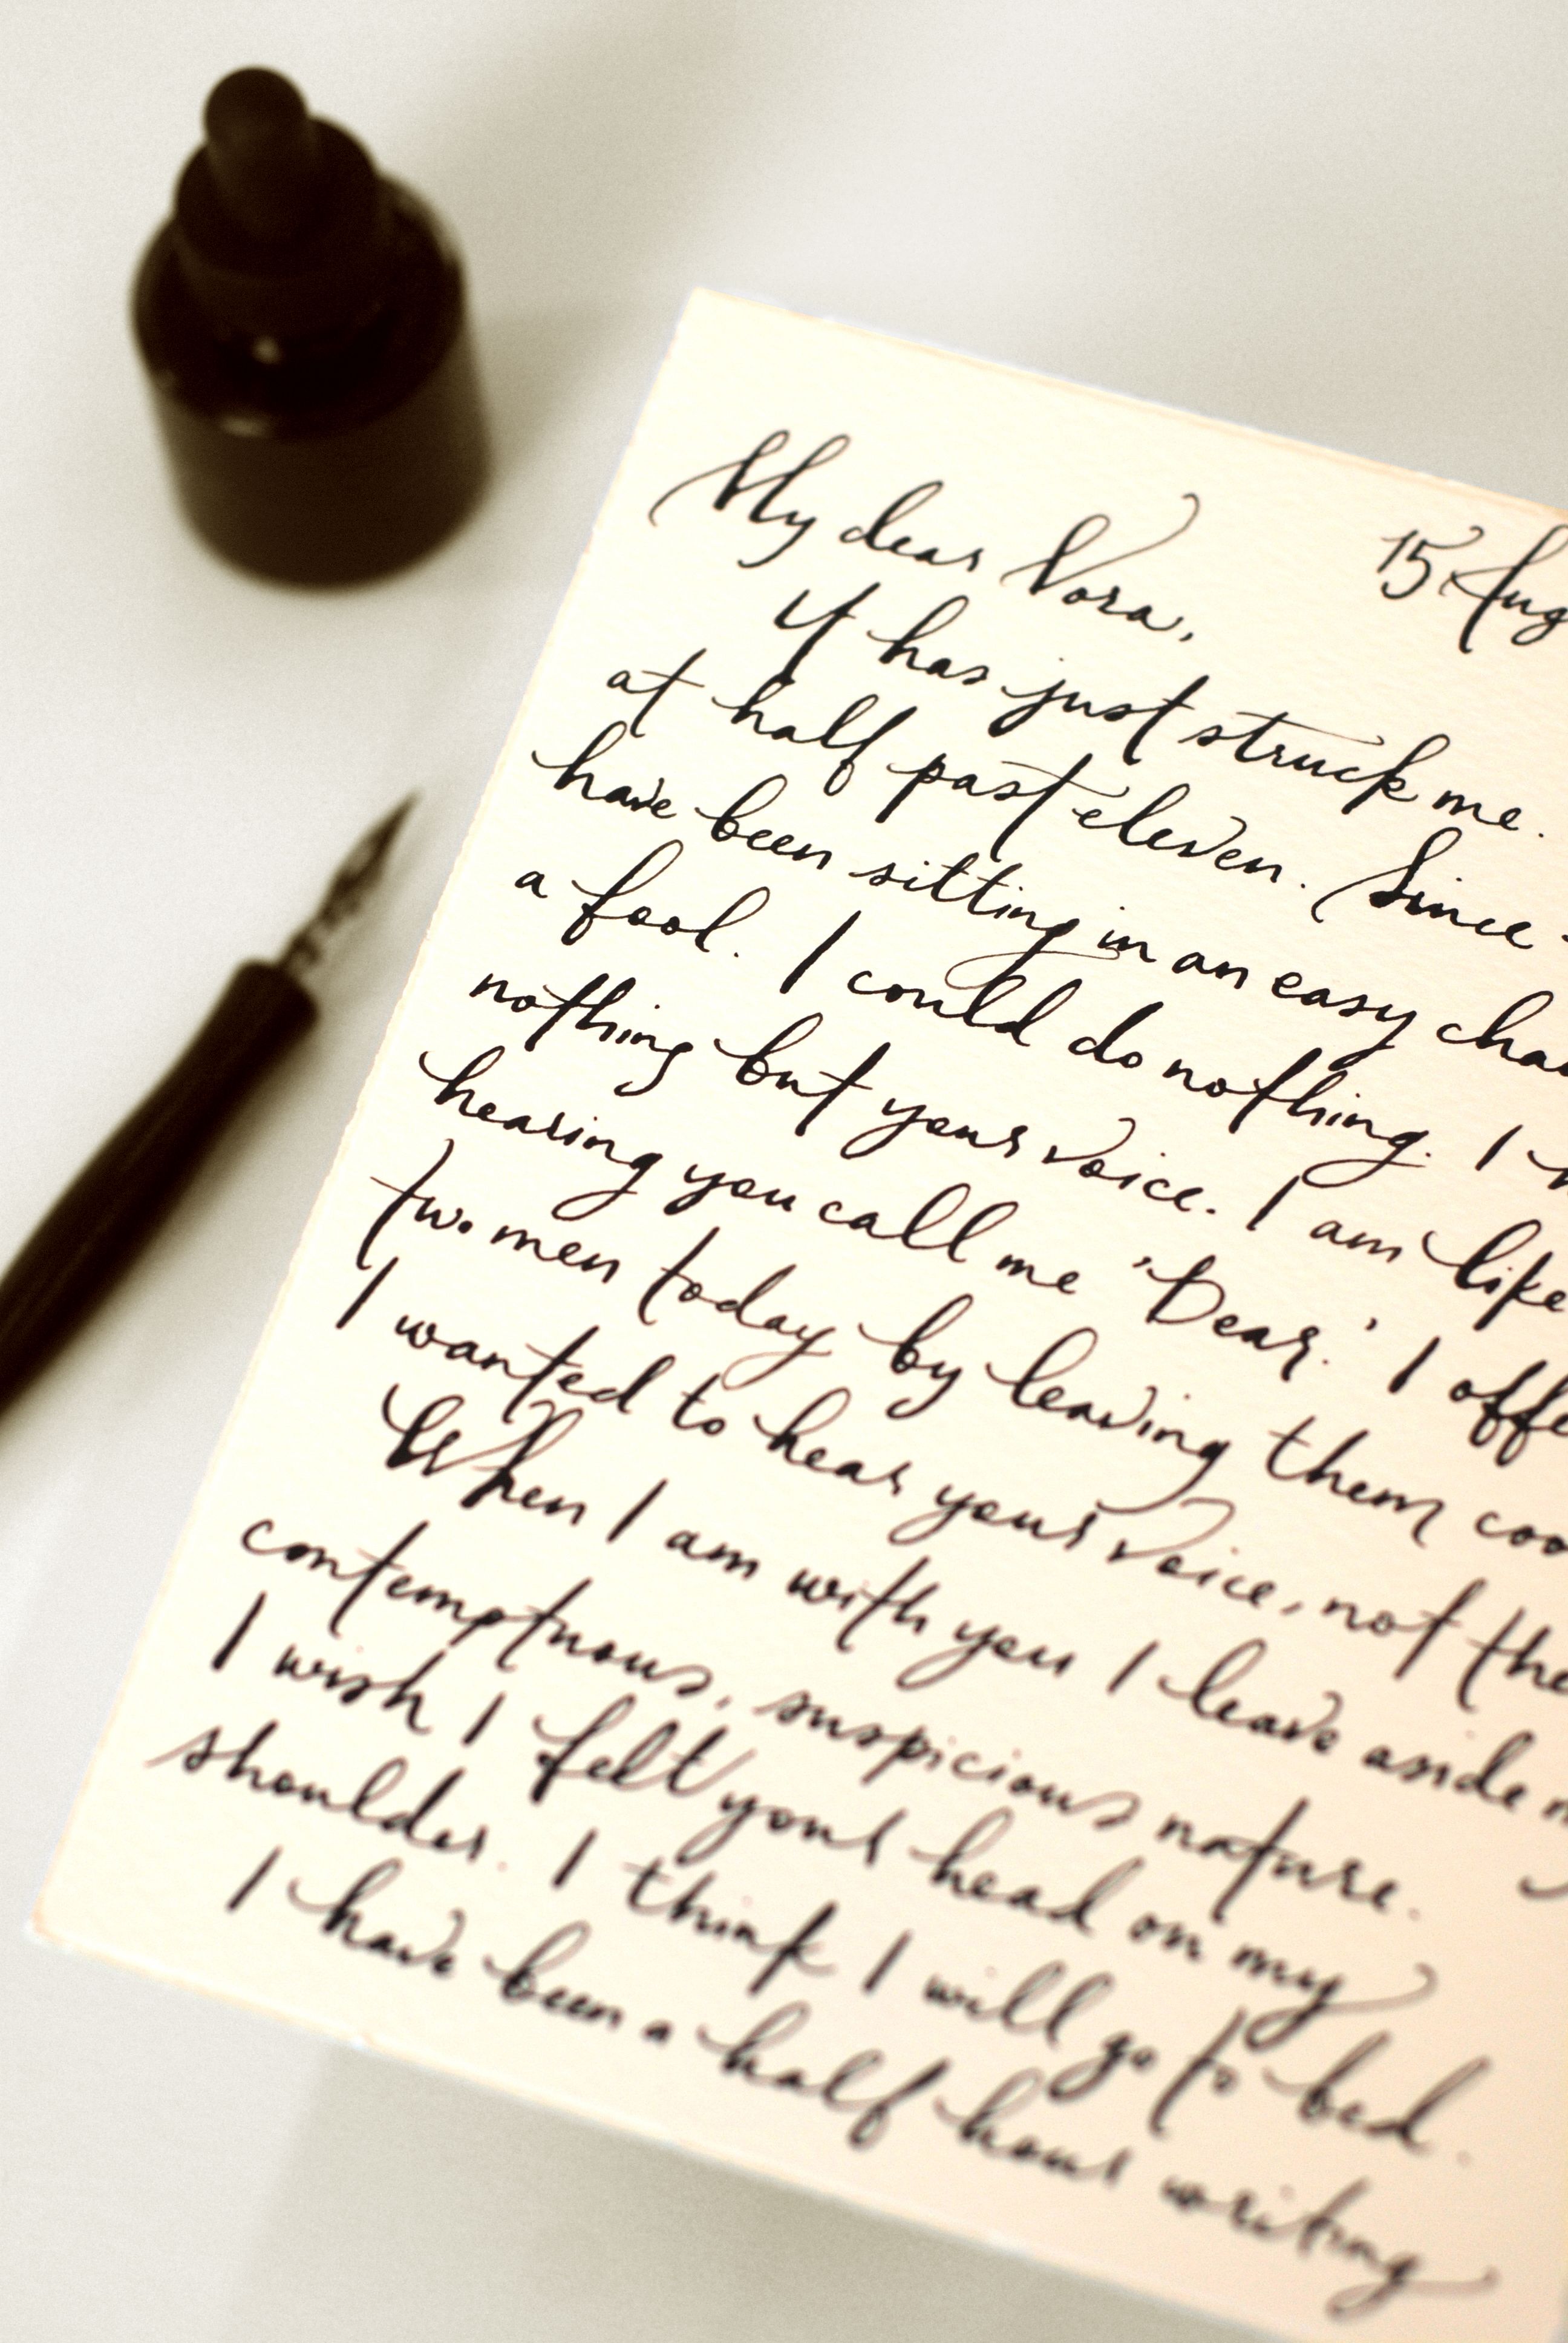 15 Aug
My dear Nora,
It has just struck me.
at half past eleven. Since
have been sitting in an easy chai
a fool. I could do nothing. I h
nothing but your voice. I am like
hearing you call me 'Dear.' I offe
two men today by leaving them coo
I wanted to hear your voice, not the
When I am with you I leave aside m
contemptuous, suspicious nature.
I wish I felt your head on my
shoulder. I think I will go to bed.
I have been a half hour writing